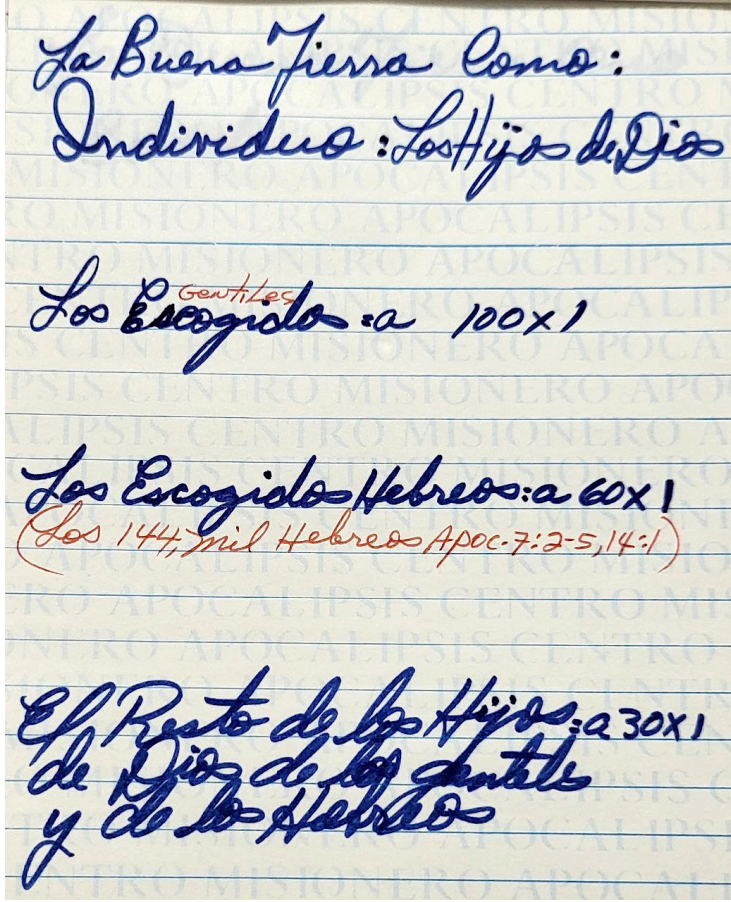 La Buena Tierra Como:
Individuo: Los Hijos de Dios
Gentiles
Los Escogidos = a 100x1
Los Escogidos Hebreos: a 60x1
(Los 144, mil Hebreos Apoc. 7:2-5, 14:1)
El Resto de los Hijos = a 30x1
de Dios de los gentiles
y de los Hebreos
APOCALIPSIS CENTRO MISIONERO